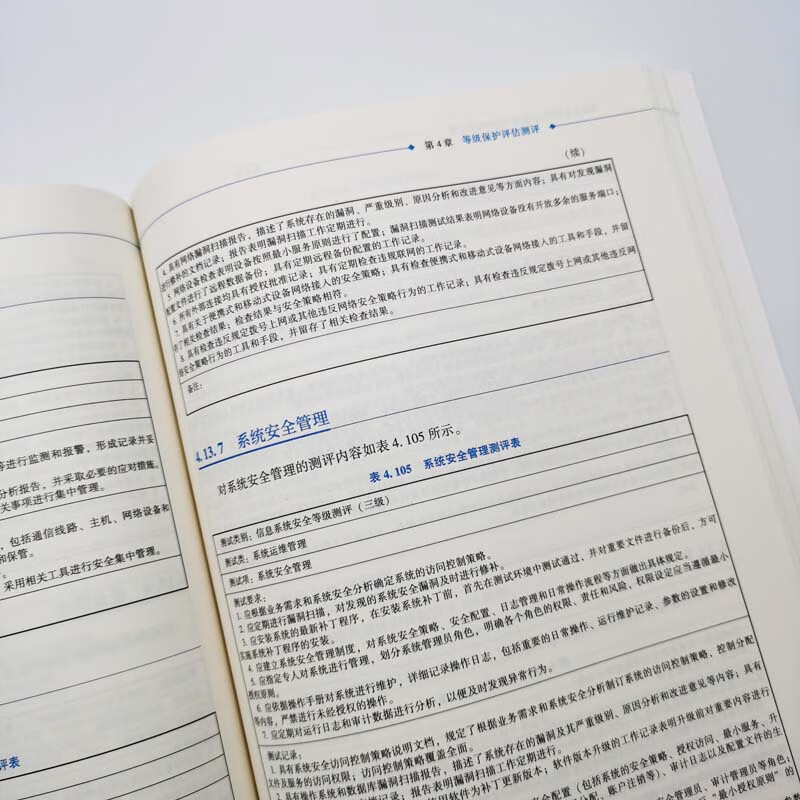 等进行监测和报警，形成记录并妥
分析报告，并采取必要的应对措施。
关事项进行集中管理。
，包括通信线路、主机、网络设备和
和保管。
采用相关工具进行安全集中管理。
评表
第4章 等级保护评估测评
（续）
4. 具有网络漏洞扫描报告，描述了系统存在的漏洞、严重级别、原因分析和改进意见等方面内容；具有对发现漏洞
进行修补的文档记录；报告表明漏洞扫描工作定期进行。
5. 网络设备检查表明设备按照最小服务原则进行了配置；漏洞扫描测试结果表明网络设备没有开放多余的服务端口；
配置文件进行了远程数据备份；具有定期远程备份配置的工作记录。
6. 所有外部连接均具有授权批准记录；具有定期检查违规联网的工作记录。
7. 具有关于便携式和移动式设备网络接入的安全策略；具有检查便携式和移动式设备网络接入的工具和手段，并留
存了相关检查结果；检查结果与安全策略相符。
8. 具有检查违反规定拨号上网或其他违反网络安全策略行为的工作记录；具有检查违反规定拨号上网或其他违反网
络安全策略行为的工具和手段，并留存了相关检查结果。
备注：
4.13.7 系统安全管理
对系统安全管理的测评内容如表4.105所示。
表4.105 系统安全管理测评表
测试类别：信息系统安全等级测评（三级）
测试类：系统运维管理
测试项：系统安全管理
测试要求：
1. 应根据业务需求和系统安全分析确定系统的访问控制策略。
2. 应定期进行漏洞扫描，对发现的系统安全漏洞及时进行修补。
3. 应安装系统的最新补丁程序，在安装系统补丁前，首先在测试环境中测试通过，并对重要文件进行备份后，方可
实施系统补丁程序的安装。
4. 应建立系统安全管理制度，对系统安全策略、安全配置、日志管理和日常操作流程等方面做出具体规定。
5. 应指定专人对系统进行管理，划分系统管理员角色，明确各个角色的权限、责任和风险，权限设定应当遵循最小
授权原则。
6. 应依据操作手册对系统进行维护，详细记录操作日志，包括重要的日常操作、运行维护记录、参数的设置和修改
等内容，严禁进行未经授权的操作。
7. 应定期对运行日志和审计数据进行分析，以便及时发现异常行为。
测试记录：
1. 具有系统安全访问控制策略说明文档，规定了根据业务需求和系统安全分析制订系统的访问控制策略，控制分配
文件及服务的访问权限；访问控制策略覆盖全面。
2. 具有操作系统和数据库漏洞扫描报告，描述了系统存在的漏洞及其严重级别、原因分析和改进意见等内容；具有